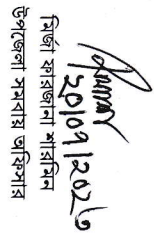 ২০/০৭/২০২৩
মির্জা ফারজানা শারমিন
উপজেলা সমবায় অফিসার